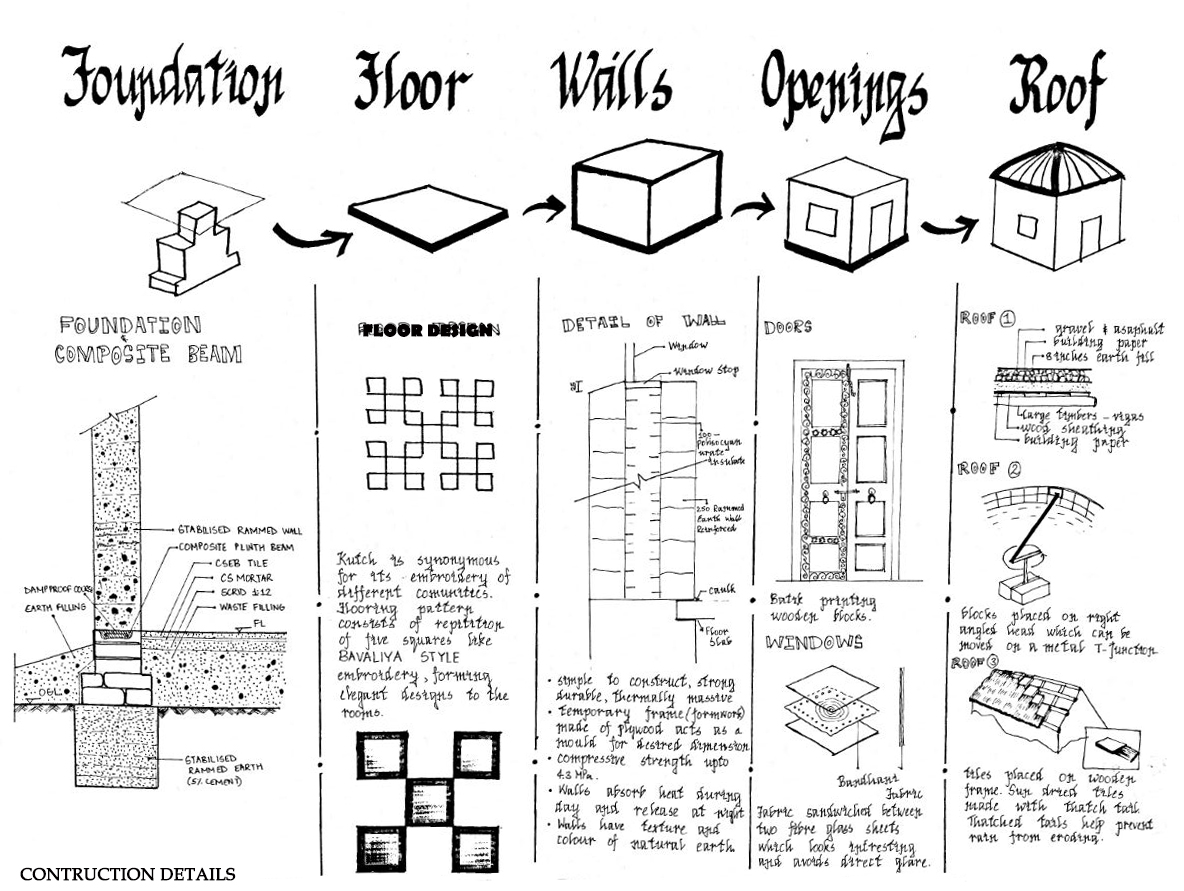 Foundation
Floor
Walls
Openings
Roof
FOUNDATION
&
COMPOSITE BEAM
STABILISED RAMMED WALL
COMPOSITE PLINTH BEAM
CSEB TILE
CS MORTAR
SCRID 1:12
WASTE FILLING
FL
DAMPPROOF COURSE
EARTH FILLING
OGL
STABILISED
RAMMED EARTH
(5% CEMENT)
FLOOR DESIGN
Kutch is synonymous
for its embroidery of
different comunities.
Flooring pattern
consists of reptition
of five squares like
BAVALIYA STYLE
embroidery, forming
elegant designs to the
rooms.
DETAIL OF WALL
Window
Window Stop
insulate
250 Rammed
Earth Wall
Reinforced
Caulk
Floor
Slab
• simple to construct, strong
durable, thermally massive
• temporary frame (formwork)
made of plywood acts as a
mould for desired dimension
• compressive strength upto
4.3 MPa.
• Walls absorb heat during
day and release at night
• Walls have texture and
colour of natural earth
DOORS
Batik printing
wooden blocks.
WINDOWS
Bandhani
Fabric
Fabric sandwiched between
two fibre glass sheets
which looks intresting
and avoids direct glare.
ROOF 1
gravel & asaphult
building paper
8 inches earth fill
large timbers - vigas
wood sheathing
building paper
ROOF 2
blocks placed on right
angled head which can be
moved on a metal T-junction
ROOF 3
tiles placed on wooden
frame. Sun dried tiles
made with thatch tail.
Thatched tails help prevent
rain from eroding.
CONTRUCTION DETAILS